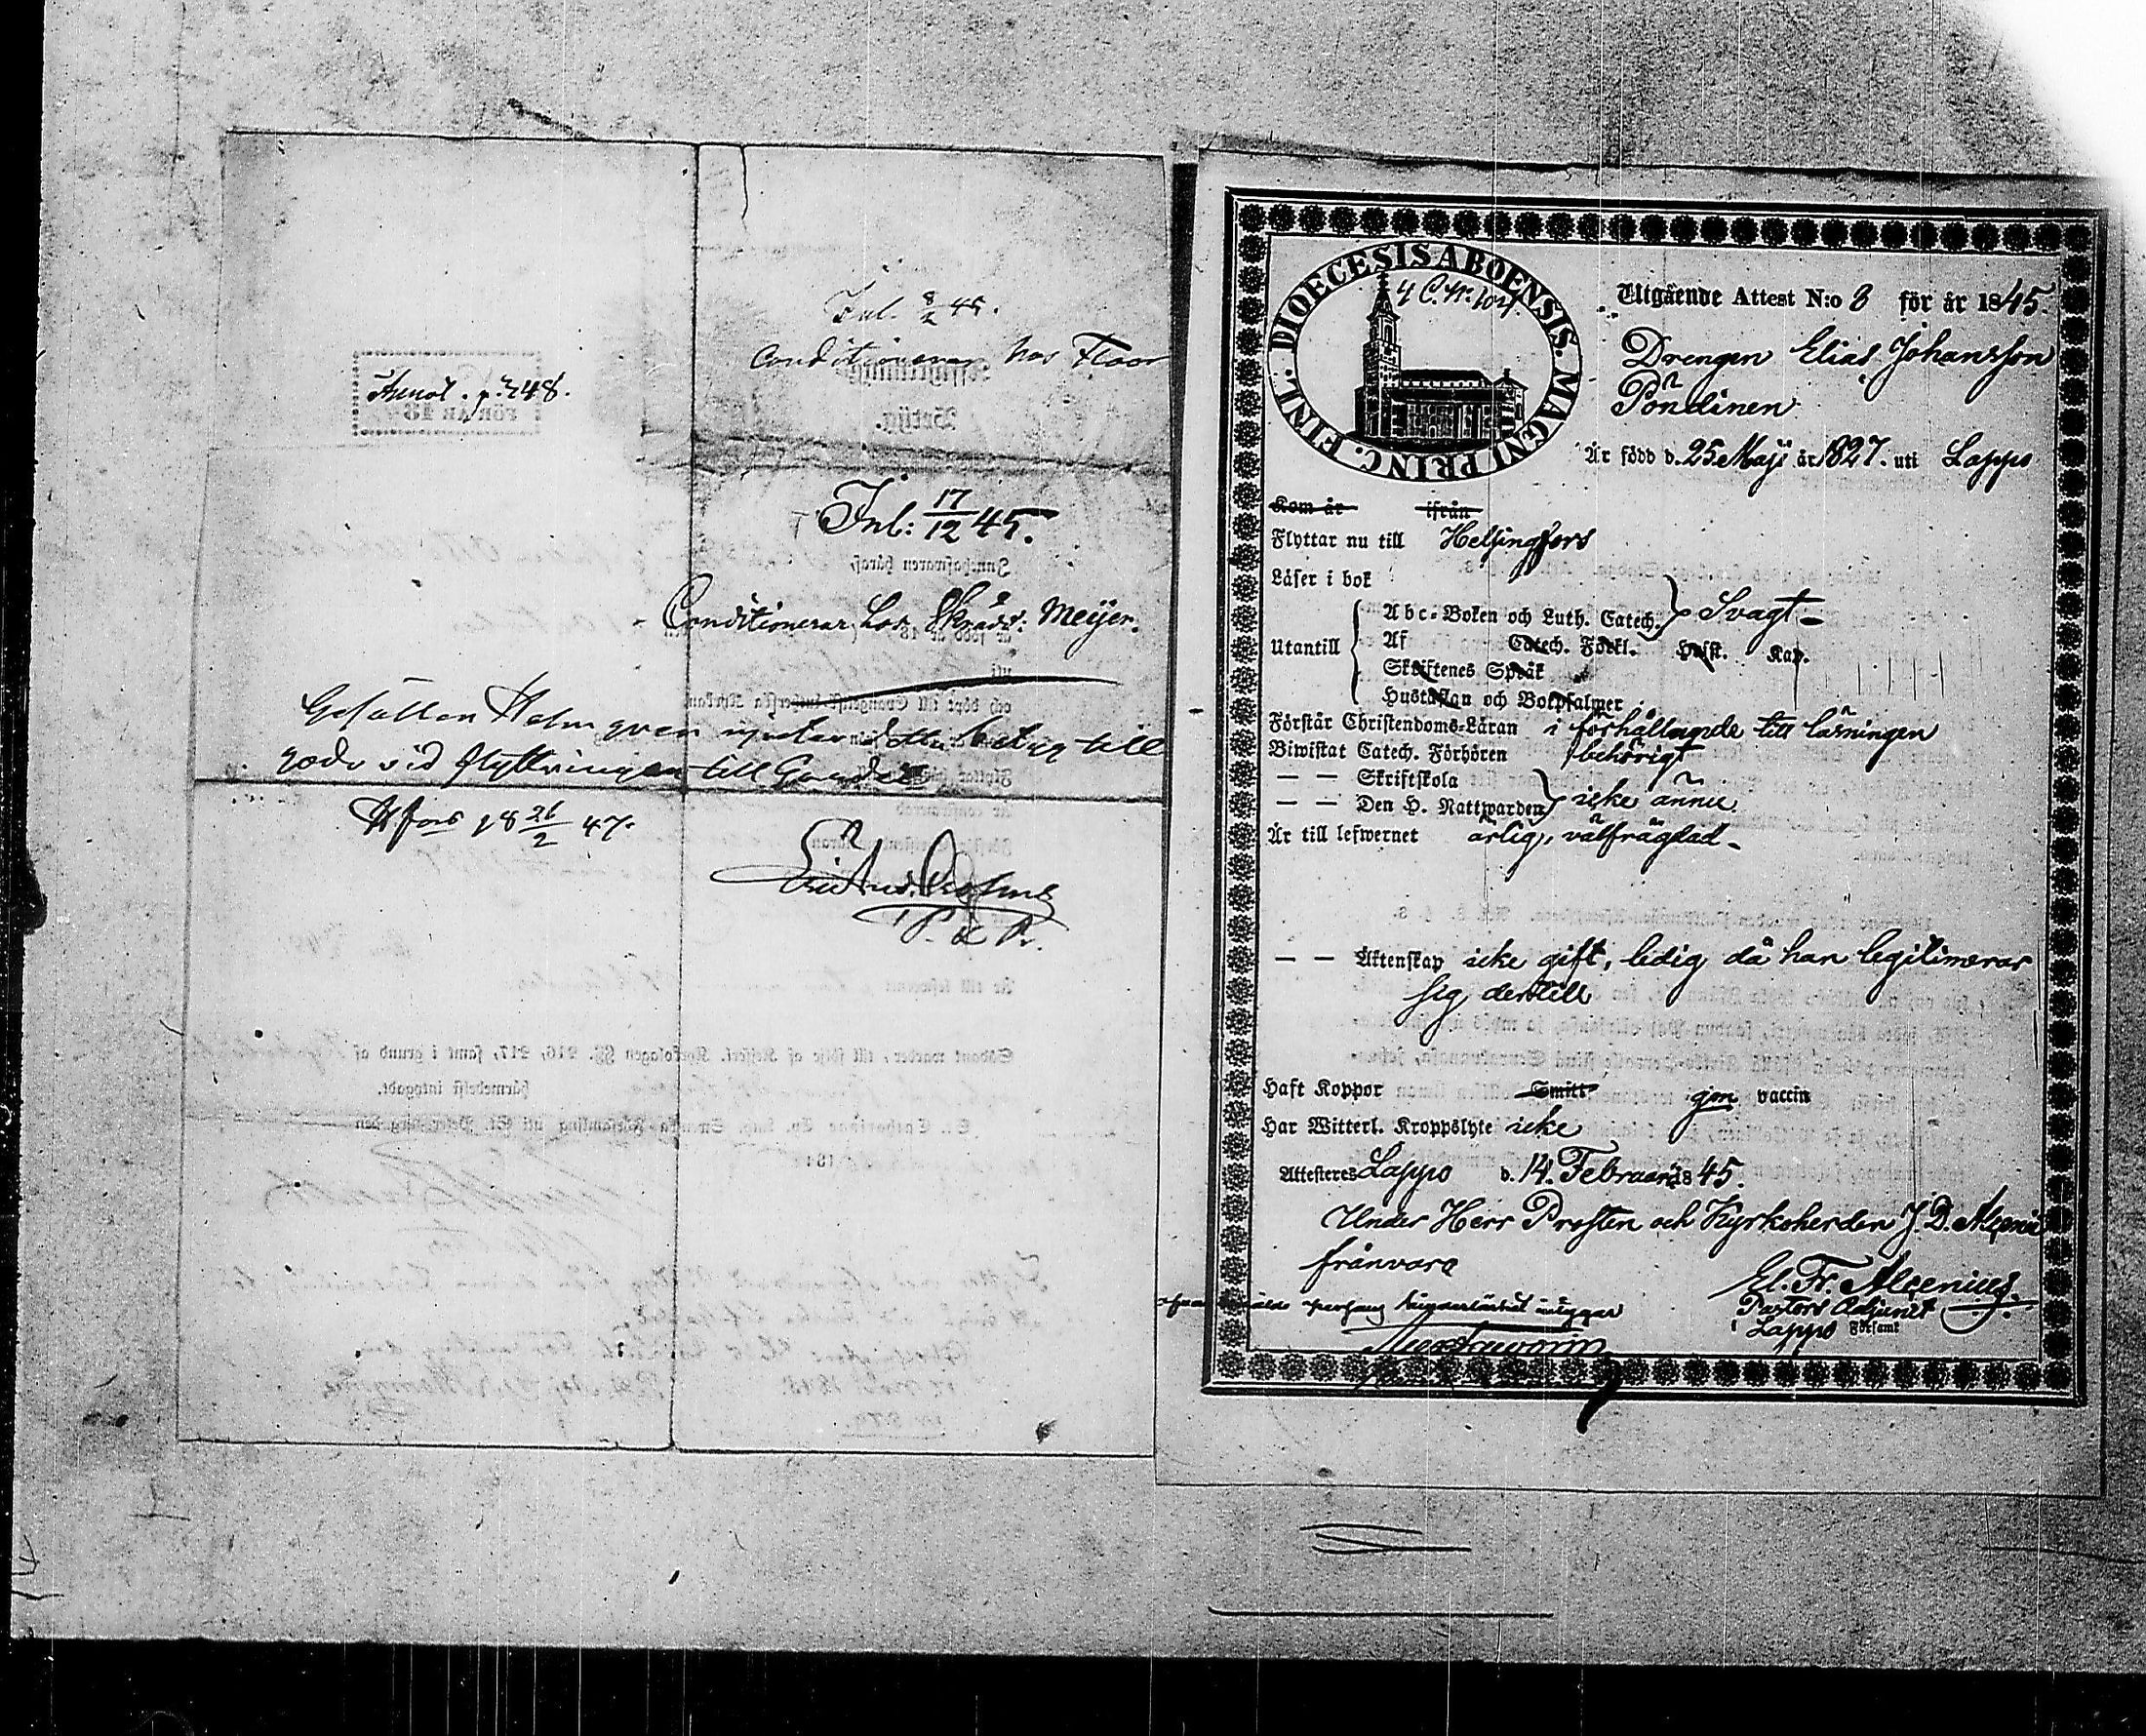 Inl. 8/2 45.
Conditionerar hos Floor
Annot. p. 248.
Inl: 17/12 45.
Conditionerar hos Skrädd: Meijer.
Gesällen Holmgren njuter detta betyg till
godo vid flyttningen till
H fors 18 26/2 47.
DIOECESIS ABOENSIS. MAGNI PRINC. FINL.
Utgående Attest N:o 8 för år 1845.
Drengen Elias Johansson
Pöndinen
Är född d. 25 Maji år 1827. uti Lappo
Kom år ifrån
Flyttar nu till Helsingfors
Läser i bok
Abc-Boken och Luth. Catech. Svagt
Utantill Af Catech. Förkl. Hust. Kap.
Skriftenes Språk
Hustaflan och Botpsalmer
Förstår Christendoms-Läran i förhållande till läsningen
Biwistat Catech. Förhören behörigt
— — Skriftskola
— — Den H. Nattwarden icke ännu
Är till lefwernet ärlig, välfrägdad
— — Äktenskap icke gift, ledig då han legitimerar
sig dertill
Haft Koppor Smitt gm vaccin
Har Witterl. Kroppslyte icke
Attesteres Lappo d. 14. Februarii 1845.
Under Herr Prosten och Kyrkoherden J. D. Alcenii
frånvaro
El. Fr. Alcenius.
Pastors Adjunct
i Lappo Församl